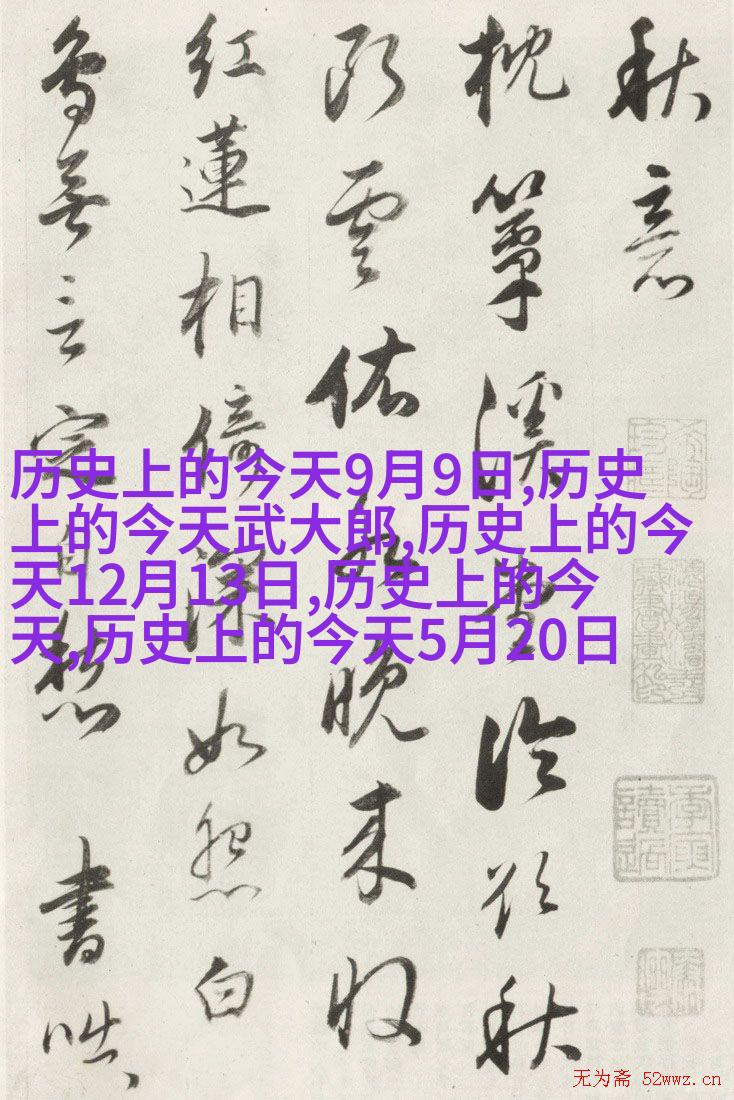 秋意
枕簟溪堂冷欲秋
断雲依水晚来收
紅蓮相倚深如怨白
鳥無言定自愁 書咄
历史上的今天9月9日,历史
上的今天武大郎,历史上的今
天12月13日,历史上的今
天,历史上的今天5月20日
无为斋 52wwz.cn